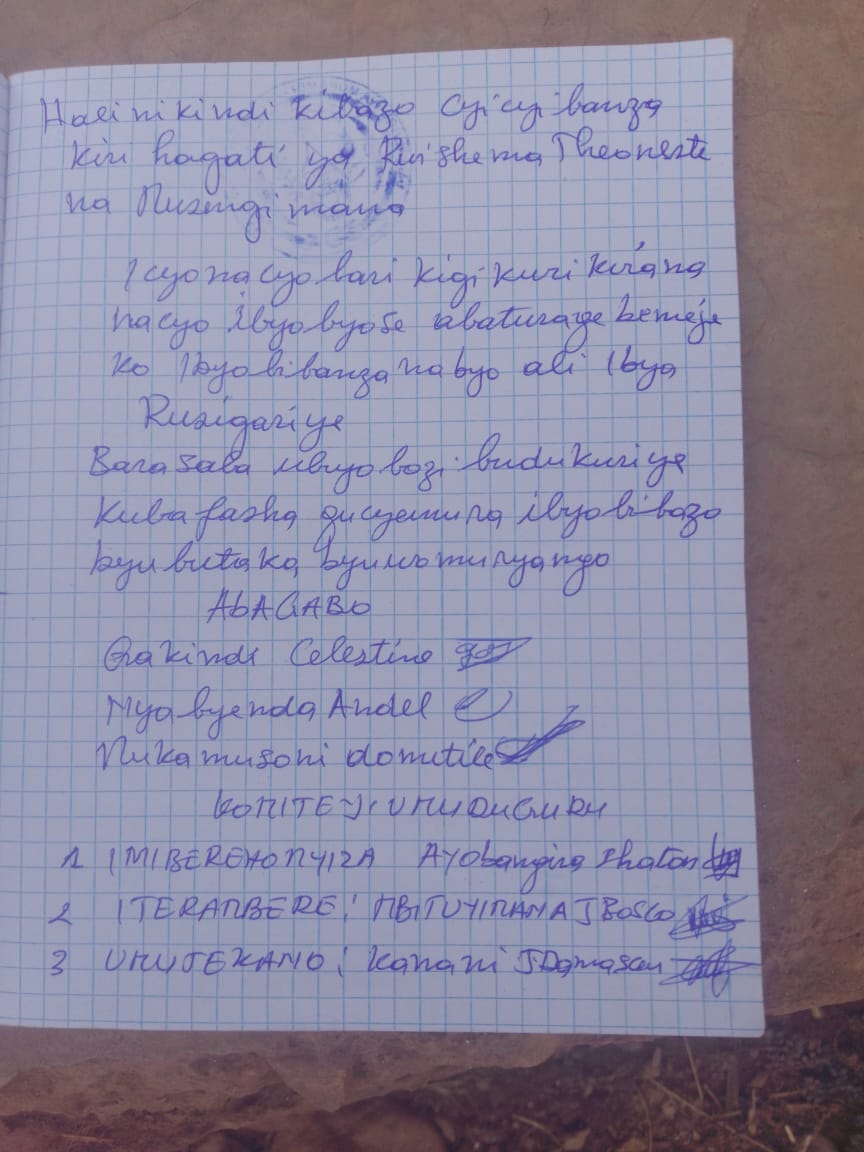 Hali ni kindi kibazo cyicyi banza
kiri hagati ya Rwishema Theoneste
na Musengimana
Icyo nacyo bari kigikurikirana
nacyo ibyo byose abaturage bemeje
ko Ibyo bibanza nabyo ali Ibya
Ruzigariye
Barasaba ubuyobozi budukuriye
kubafasha gucyemura ibyo bibazo
byubutaka byuwo muryango
AbAGABO
Gakindi Celestine
Nyabyenda Andel
Mukamusoni domitile
KOMITE Y'UMUDUGUDU
1 IMIBEREHO MYIZA Ayobangira
2 ITERAMBERE: MBITUYIMANA J BOSCO
3 UMUTEKANO: Kanani J.Damascen